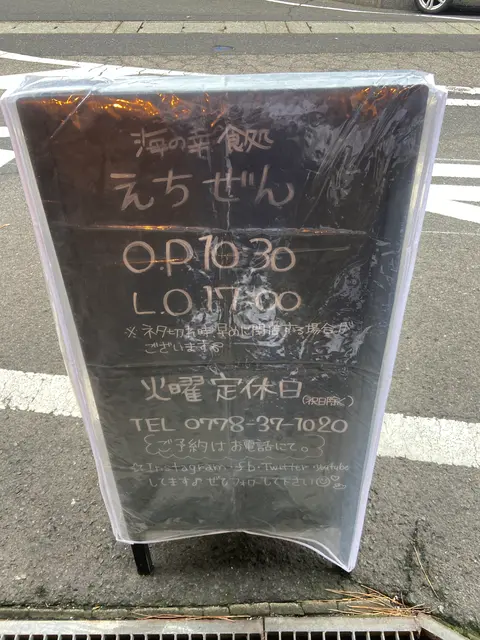 海の幸 食処
えちぜん
O.P 10:30
L.O 17:00
※ネタ切れ時早めに閉店する場合が
ございます
火曜 定休日(祝日除く)
TEL 0778-37-7020
ご予約はお電話にて。
☆Instagram・fb・Twitter・Youtube
してます♪ ぜひフォローして下さい